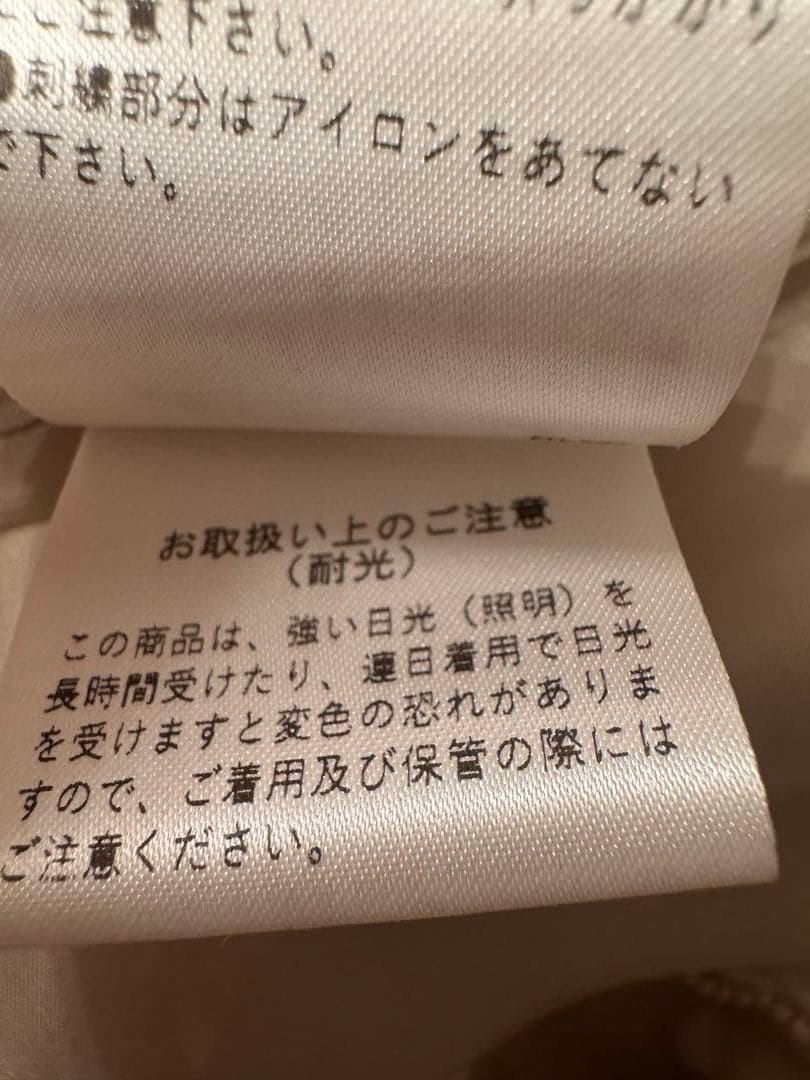 ご注意下さい。
●刺繍部分はアイロンをあてない
で下さい。
お取扱い上のご注意
(耐光)
この商品は、強い日光(照明)を
長時間受けたり、連日着用で日光
を受けますと変色の恐れがありま
すので、ご着用及び保管の際には
ご注意ください。